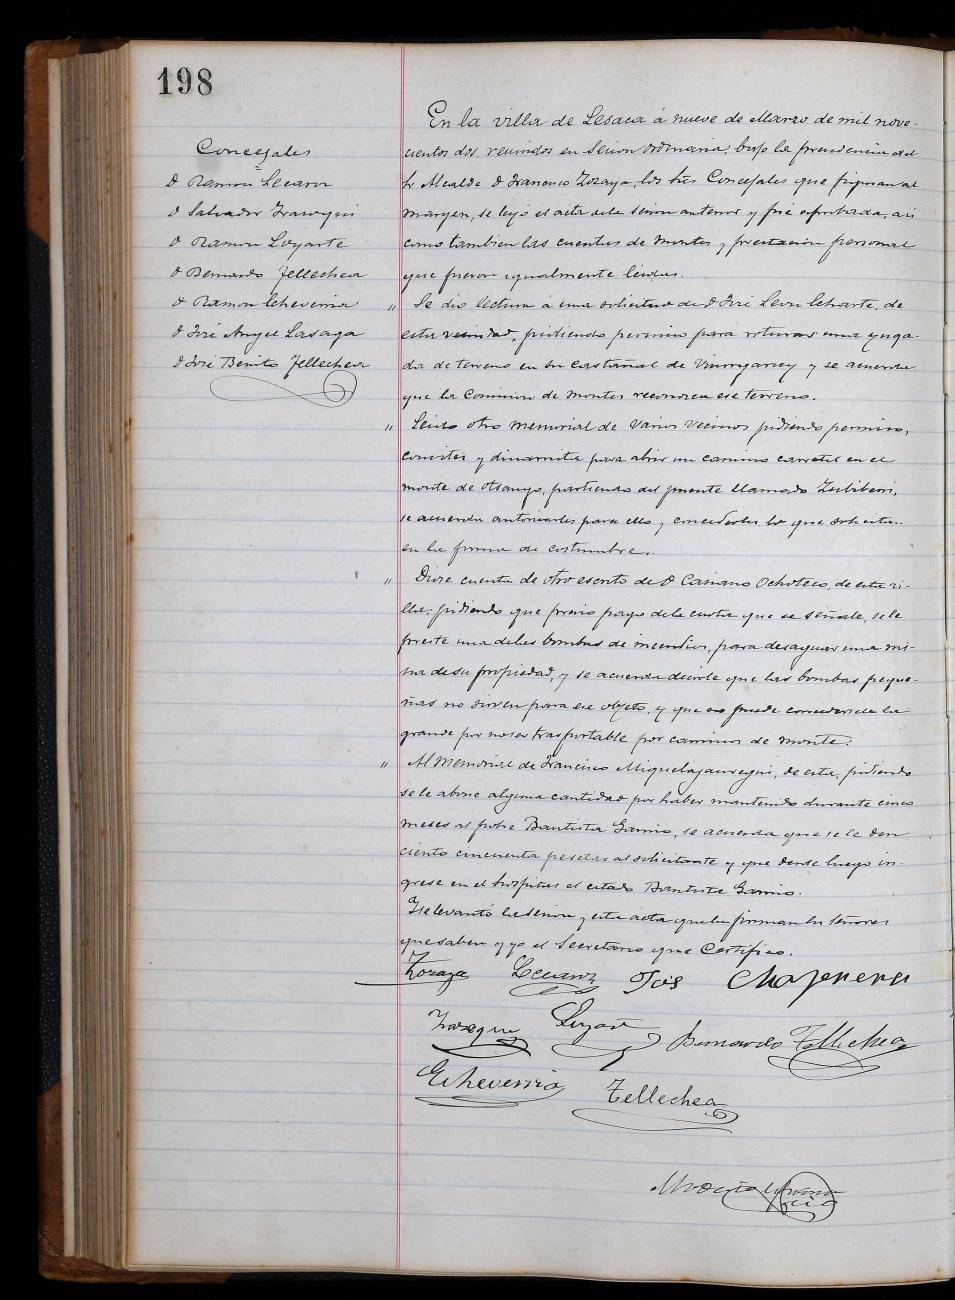 198
Concejales
D Ramon Lecaroz
D Salvador Irazoqui
D Ramon Loyarte
D Bernardo Tellechea
D Ramon Echeverria
D José Angel Lasaga
D José Benito Tellechea
En la villa de Lesaca á nueve de Marzo de mil nove-
cientos dos, reunidos en Sesion ordinaria, bajo la presidencia del
Sr Alcalde D Francisco Zozaya, los Srs Concejales que figuran al
margen, se leyó el acta de la sesion anterior y fué aprobada, asi
como tambien las cuentas de montes y prestacion personal
que fueron igualmente leidas.
" Se dio lectura á una solicitud de D José Leon de
esta vecindad, pidiendo permiso para roturar una yuga-
da de terreno en su castañal de y se acuerda
que la Comision de montes reconozca ese terreno.
" Leido otro memorial de varios vecinos pidiendo permiso,
convites y dinamita para abrir un camino carretil en el
monte de Otsango, partiendo del puente llamado
se acuerda autorizarles para ello y concederles lo que solicitan
en la forma de costumbre.
" Diose cuenta de otro escrito de D Casiano Ochoteco, de esta vi-
lla, pidiendo que previo pago de la cuota que se señale, se le
preste una de las bombas de incendios, para desaguar una mi-
na de su propiedad, y se acuerda decirle que las bombas peque-
ñas no sirven para ese objeto, y que no puede concedersele la
grande por no ser trasportable por caminos de monte.
" Al memorial de Francisco Miquelajauregui, de esta, pidiendo
se le abone alguna cantidad por haber mantenido durante cinco
meses al pobre Bautista Gamio, se acuerda que se le den
ciento cincuenta pesetas al solicitante y que desde luego in-
grese en el hospital el citado Bautista Gamio.
Y se levantó la sesion y esta acta que la firman los señores
que saben y yo el Secretario que Certifico.
Zozaya Lecaroz José
Irazoqui Loyarte Bernardo Tellechea
Echeverria Tellechea